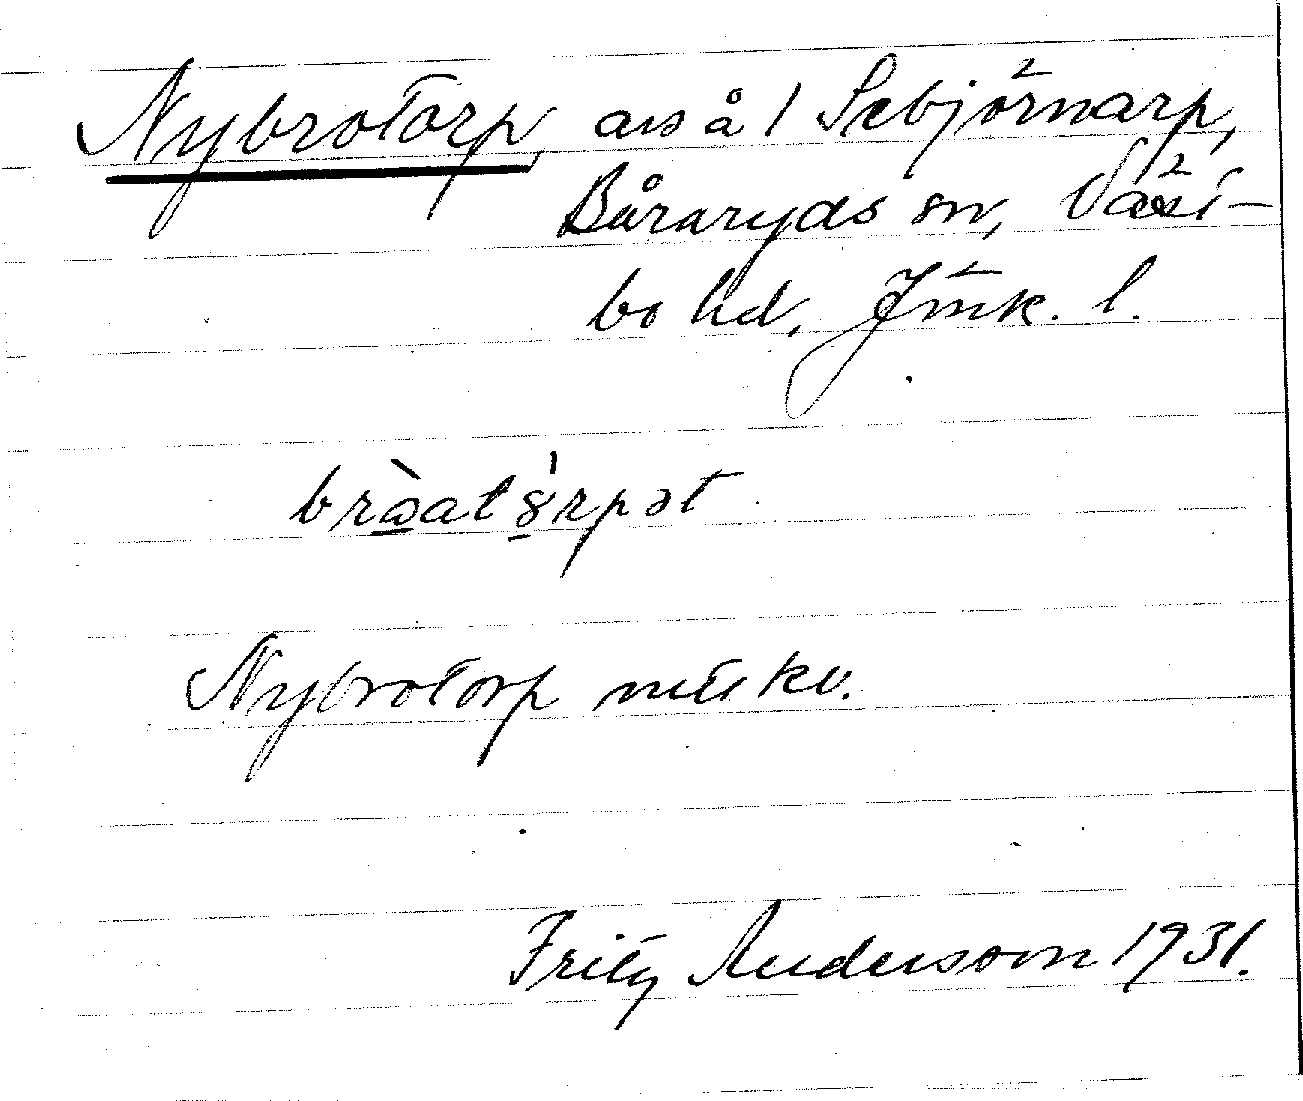 Nybrotorp, avs å 1 Sebjörnarp,
Båraryds sn, Väst-
bo hd, Jönk. l.
Nybrotorp mtlkv.
Fritz Andersson 1931.